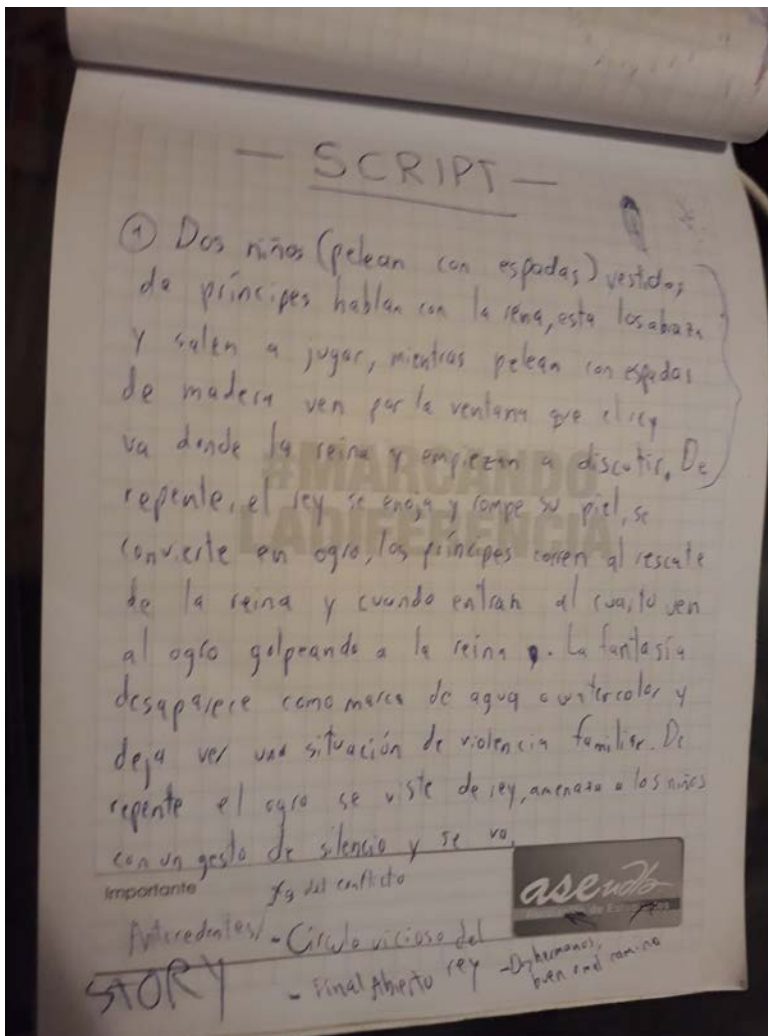 — SCRIPT —
① Dos niños (pelean con espadas) vestidos
de príncipes hablan con la reina, esta los abraza
y salen a jugar, mientras pelean con espadas
de madera ven por la ventana que el rey
va donde la reina y empiezan a discutir. De
repente, el rey se enoja y rompe su piel, se
convierte en ogro, los príncipes corren al rescate
de la reina y cuando entran al cuarto ven
al ogro golpeando a la reina. La fantasía
desaparece como marca de agua o watercolor y
deja ver una situación de violencia familiar. De
repente el ogro se viste de rey, amenaza a los niños
con un gesto de silencio y se va.
#MARCANDO
LADIFERENCIA
Importante
del conflicto
Antecedentes/ - Círculo vicioso del
rey
STORY
- Final Abierto
- Dos hermanos,
buen o mal camino
aseudb
de